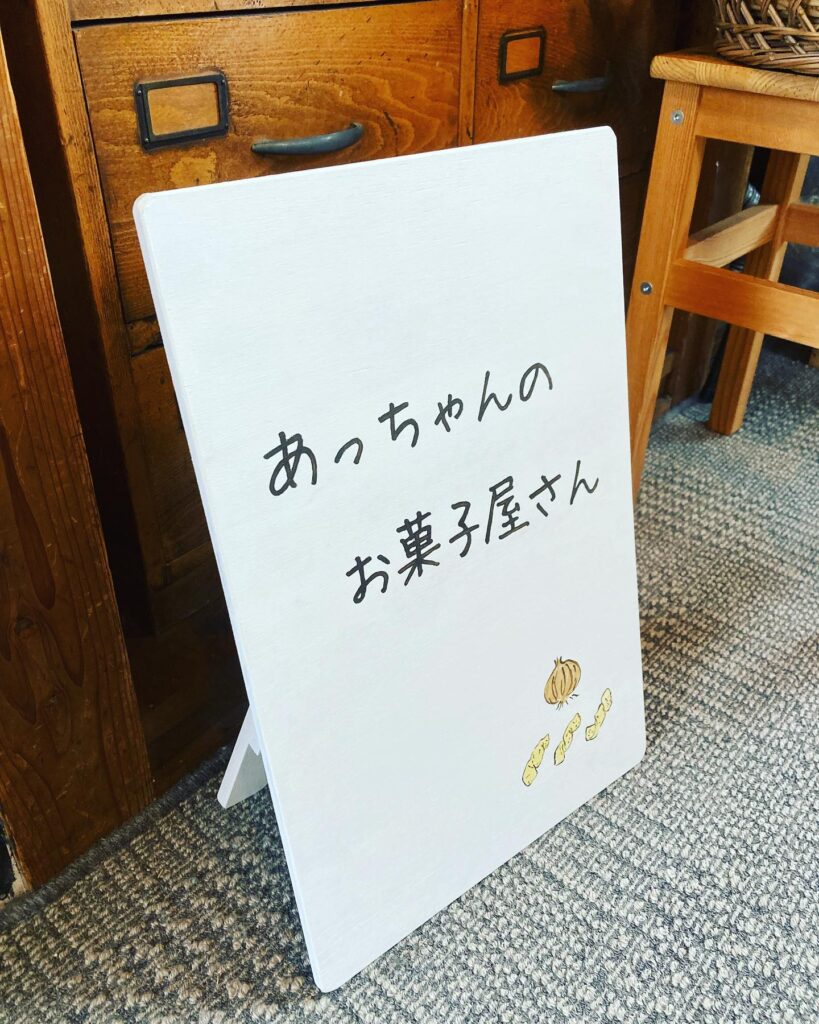 あっちゃんの
お菓子屋さん